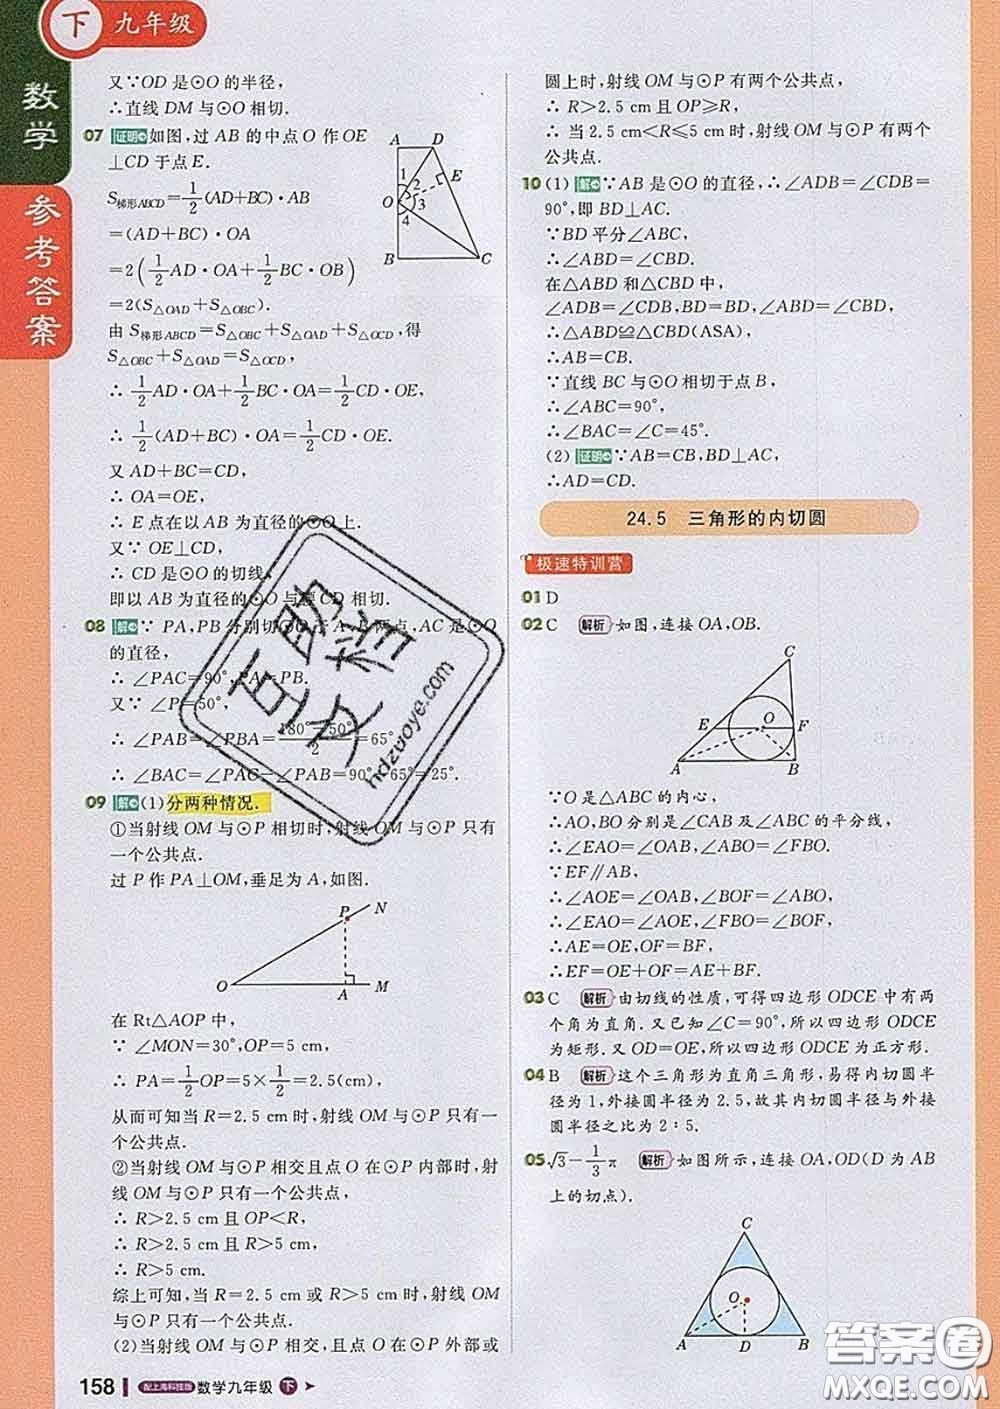 下 九年级
数学
参考答案
又∵OD 是⊙O 的半径,
∴直线 DM 与⊙O 相切.
07 证明 如图,过 AB 的中点 O 作 OE
⊥CD 于点 E.
S梯形ABCD=1/2(AD+BC)·AB
=(AD+BC)·OA
=2(1/2AD·OA+1/2BC·OB)
=2(S△OAD+S△OBC).
由 S梯形ABCD=S△OBC+S△OAD+S△OCD,得
S△OBC+S△OAD=S△OCD,
∴ 1/2AD·OA+1/2BC·OA=1/2CD·OE,
∴ 1/2(AD+BC)·OA=1/2CD·OE.
又 AD+BC=CD,
∴ OA=OE,
∴ E 点在以AB 为直径的⊙O 上.
又∵ OE⊥CD,
∴ CD 是⊙O 的切线,
即以 AB 为直径的⊙O 与腰 CD 相切.
A D E O B C 1 2 3 4
08 解 ∵ PA,PB 分别切⊙O 于 A,B 两点,AC 是⊙O
的直径,
∴ ∠PAC=90°,PA=PB.
又∵ ∠P=50°,
∴ ∠PAB=∠PBA=(180°-50°)/2=65°,
∴ ∠BAC=∠PAC-∠PAB=90°-65°=25°.
09 解 (1)分两种情况.
①当射线 OM 与⊙P 相切时,射线 OM 与⊙P 只有
一个公共点.
过 P 作 PA⊥OM,垂足为 A,如图.
P N O A M
在 Rt△AOP 中,
∵ ∠MON=30°,OP=5 cm,
∴ PA=1/2OP=5×1/2=2.5(cm),
从而可知当 R=2.5 cm 时,射线 OM 与⊙P 只有一
个公共点.
②当射线 OM 与⊙P 相交且点 O 在⊙P 内部时,射
线 OM 与⊙P 只有一个公共点,
∴ R>2.5 cm 且 OP<R,
∴ R>2.5 cm 且 R>5 cm,
∴ R>5 cm.
综上可知,当 R=2.5 cm 或 R>5 cm 时,射线 OM 与
⊙P 只有一个公共点.
(2)当射线 OM 与⊙P 相交,且点 O 在⊙P 外部或
圆上时,射线 OM 与⊙P 有两个公共点,
∴ R>2.5 cm 且OP≥R,
∴ 当 2.5 cm<R≤5 cm 时,射线 OM 与⊙P 有两个
公共点.
10 (1) 解 ∵AB 是⊙O 的直径,∴∠ADB=∠CDB=
90°,即 BD⊥AC.
∵BD 平分∠ABC,
∴∠ABD=∠CBD.
在△ABD 和△CBD 中,
∠ADB=∠CDB,BD=BD,∠ABD=∠CBD,
∴△ABD≌△CBD(ASA),
∴AB=CB.
∵直线 BC 与⊙O 相切于点 B,
∴∠ABC=90°,
∴∠BAC=∠C=45°.
(2) 证明 ∵AB=CB,BD⊥AC,
∴AD=CD.
24.5 三角形的内切圆
极速特训营
01 D
02 C 解析 如图,连接 OA,OB.
C E O F A B
∵O 是△ABC 的内心,
∴AO,BO 分别是∠CAB 及∠ABC 的平分线,
∴∠EAO=∠OAB,∠ABO=∠FBO.
∵EF∥AB,
∴∠AOE=∠OAB,∠BOF=∠ABO,
∴∠EAO=∠AOE,∠FBO=∠BOF,
∴AE=OE,OF=BF,
∴EF=OE+OF=AE+BF.
03 C 解析 由切线的性质,可得四边形 ODCE 中有两
个角为直角.又已知∠C=90°,所以四边形 ODCE
为矩形.又 OD=OE,所以四边形 ODCE 为正方形.
04 B 解析 这个三角形为直角三角形,易得内切圆半
径为 1,外接圆半径为 2.5,故其内切圆半径与外接
圆半径之比为 2∶5.
05 √3-1/3π 解析 如图所示,连接 OA,OD(D 为 AB
上的切点).
C O A D B
158 配上海科技版 数学九年级 下
互助文档
hdzuoye.com
答案圈
MXQE.COM